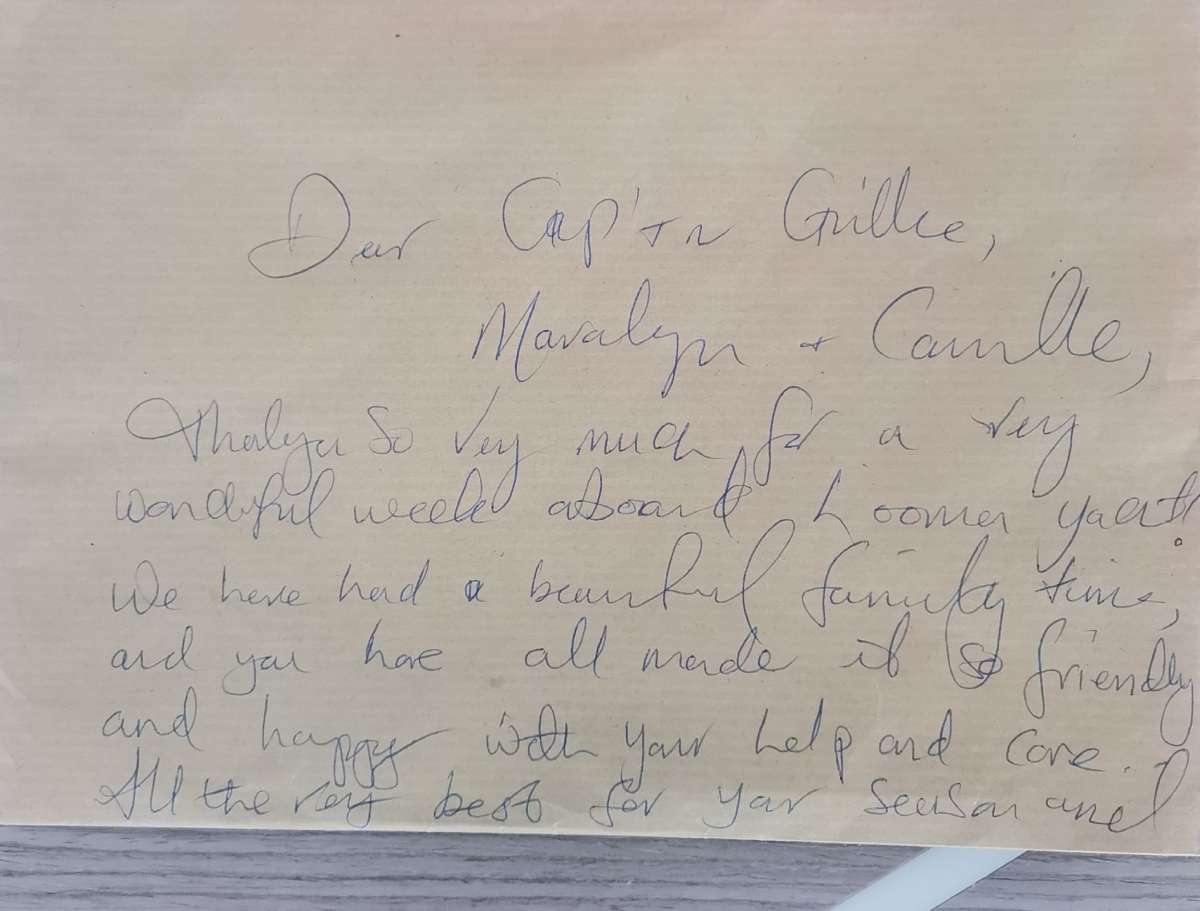 Dear Cap'tn
Maralyn + Camille,
Thankyou so very much for a very
wonderful week aboard yacht.
We have had a beautiful family time,
and you have all made it so friendly
and happy with your help and care.
All the very best for your season and